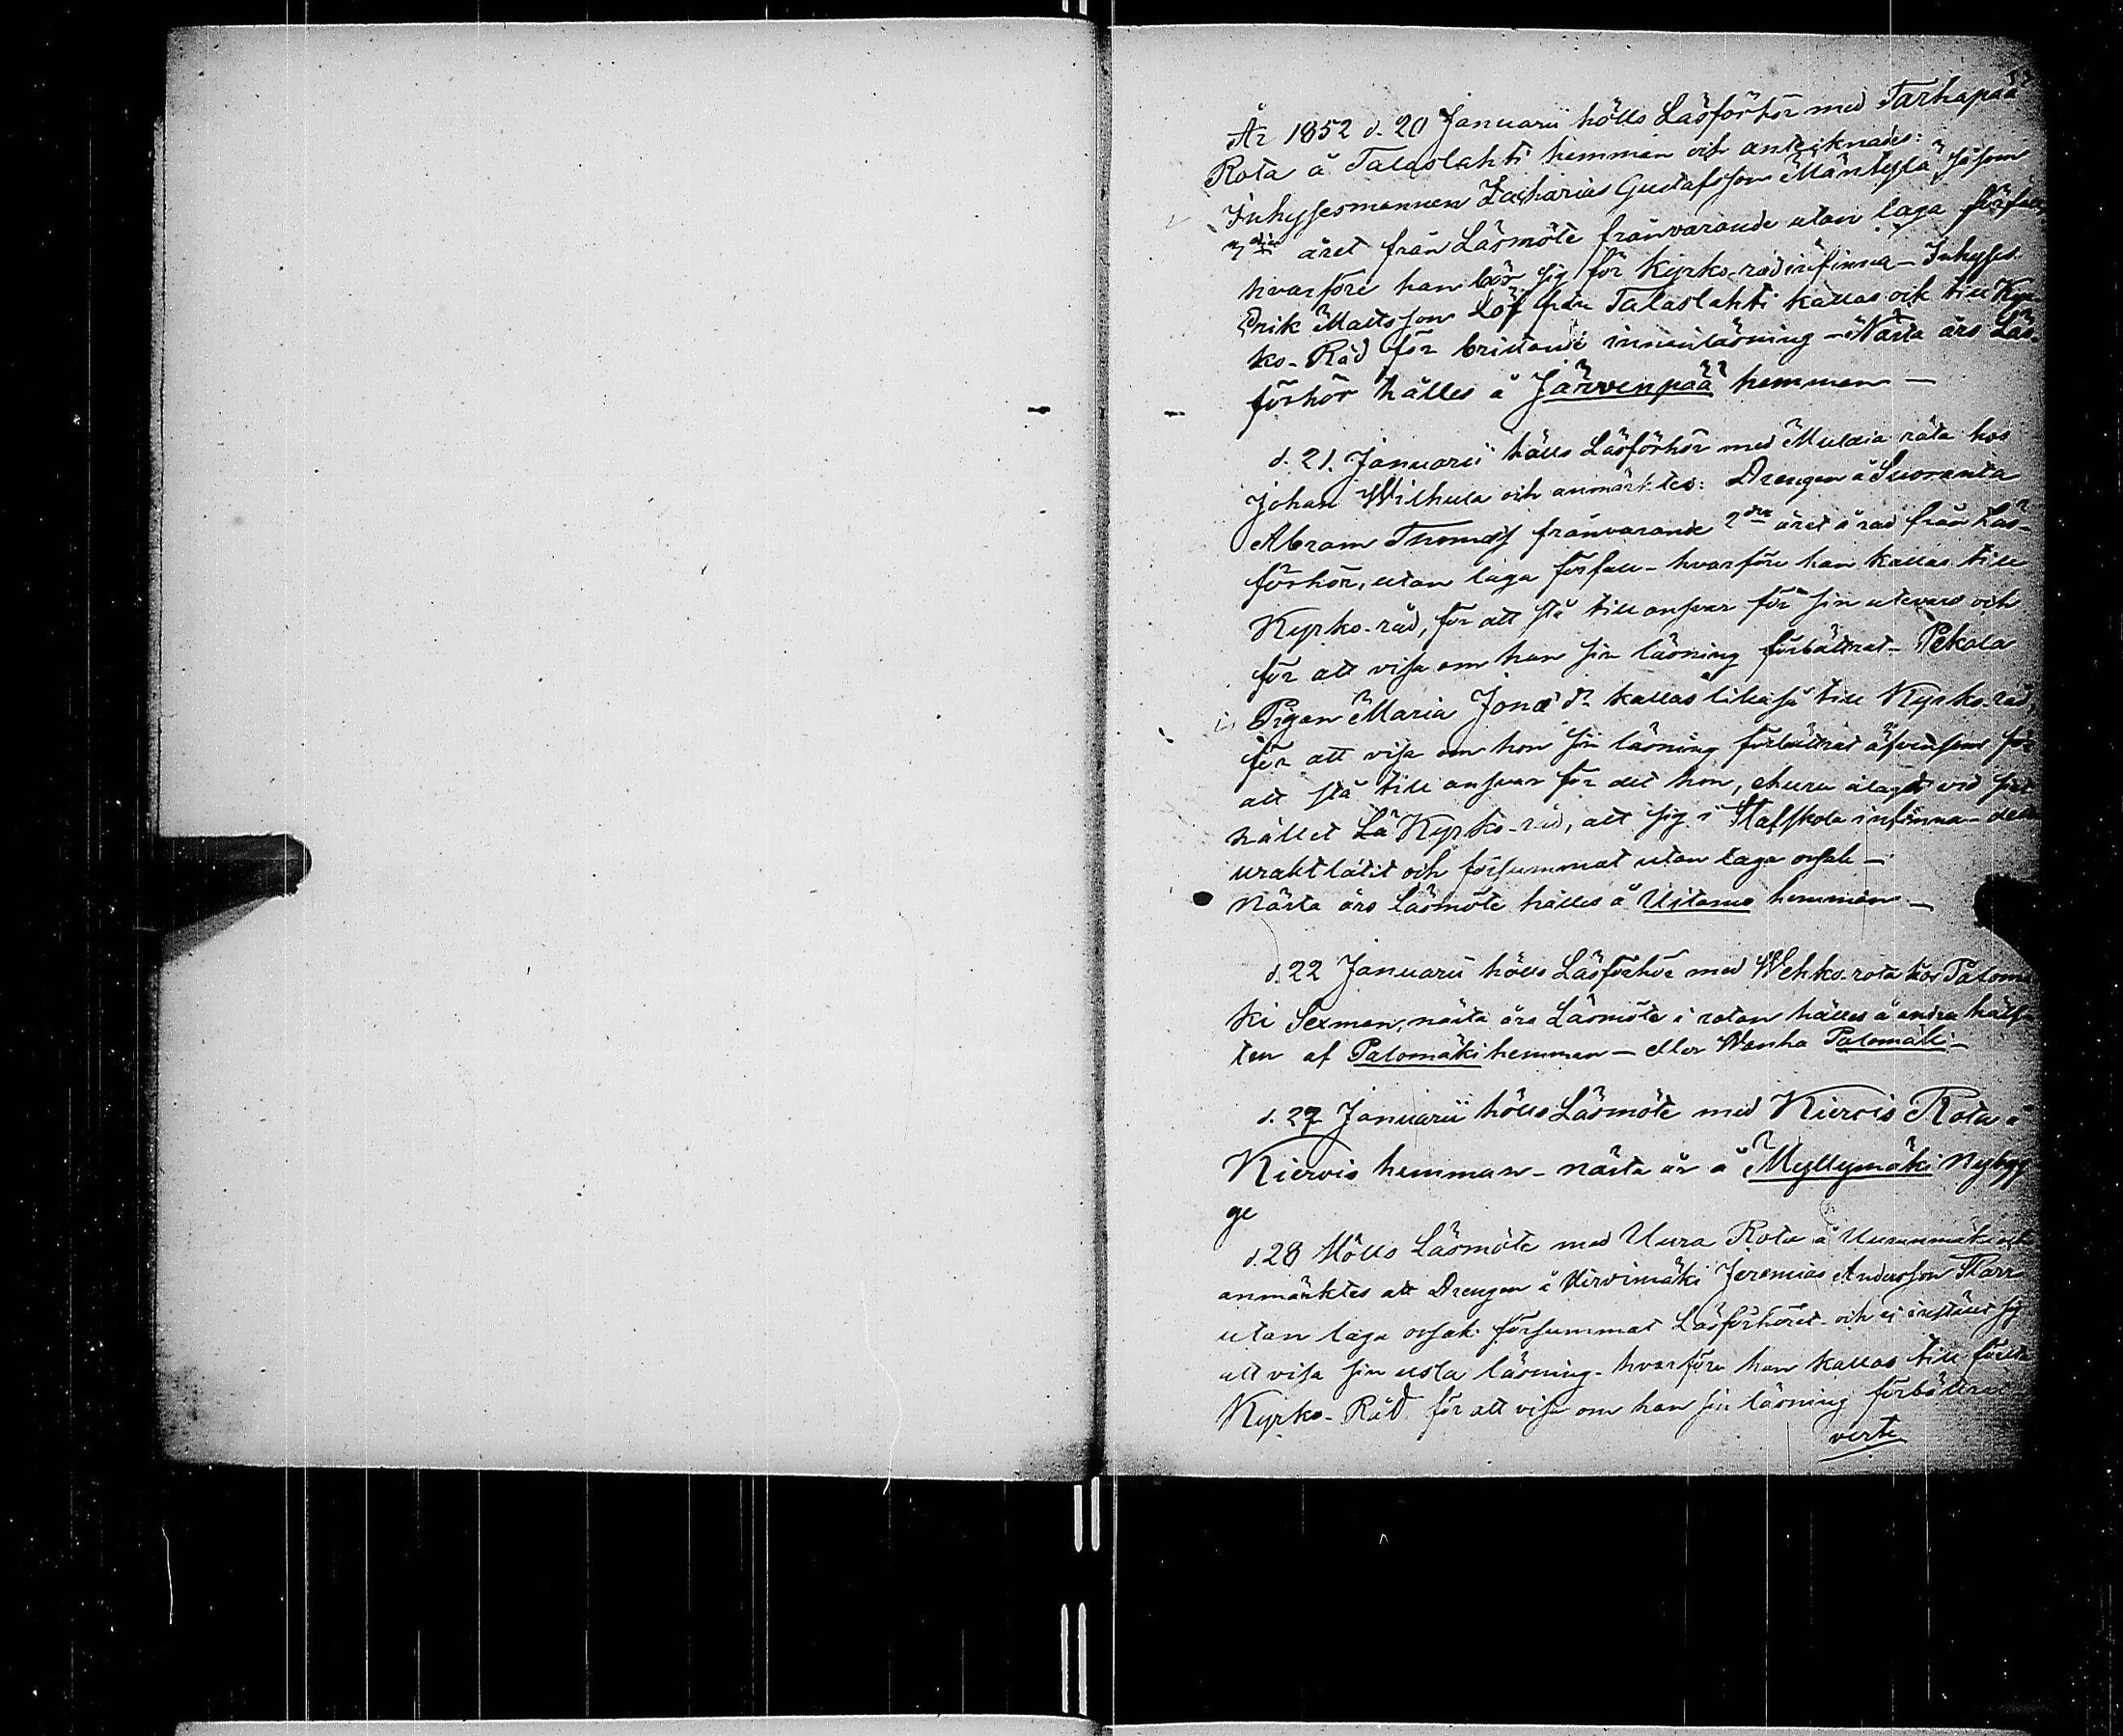 År 1852 d. 20 Januarii hölls Läsförhör med Tarhapää
Rota å Talaslahti hemman och antecknades:
Inhysesmannen Zacharias Gustafsson Mäntylä såsom
året från Läsmöte frånvarande utan laga förfall
hvarföre han bör sig för Kyrko-råd infinna - Inhyses
Erik Mattsson Löf från Talaslahti kallas och till Kyr-
ko-Råd för bristande innanläsning - Nästa års Läs-
förhör hålles å Järvenpää hemman -
d. 21. Januarii hölls Läsförhör med Muldia rota hos
Johan Wilhula och anmärktes: Drengen å Suoranta
Abram Thomæs frånvarande 2dra året å rad från Läs-
förhör, utan laga förfall - hvarföre han kallas till
Kyrko-råd, för att stå till ansvar för sin utevaro och
för att visa om han sin läsning förbättrat - Pekola
Pigan Maria Jonæ dr kallas likaså till Kyrko-råd,
för att visa om hon sin läsning förbättrat äfvensom för
att stå till ansvar för det hon, ehuru ålagd vid sist
hållet Kyrko-råd, att sig i Stafskola infinna - detta
uraktlåtit och försummat utan laga orsak -
Nästa års läsmöte hålles å Uitamo hemman -
d. 22 Januarii hölls Läsförhör med Wehko-rota hos Palomä
ki Sexman, nästa års Läsmöte i rotan hålles å andra hälf-
ten af Palomäki hemman - eller Wanha Palomäki -
d. 27 Januarii hölls Läsmöte med Kiervis Rota å
Kiervis hemman - nästa år å Myllymäki Nybyg
ge
d. 28 Hölls Läsmöte med Uura Rota å Uuranmäki och
anmärktes att Drengen å Hirvimäki Jeremias Andersson Starr
utan laga orsak försummat Läsförhöret - och ej instält sig
att visa sin usla läsning - hvarföre han kallas till
Kyrko-Råd för att visa om han sin läsning förbättrat
verte